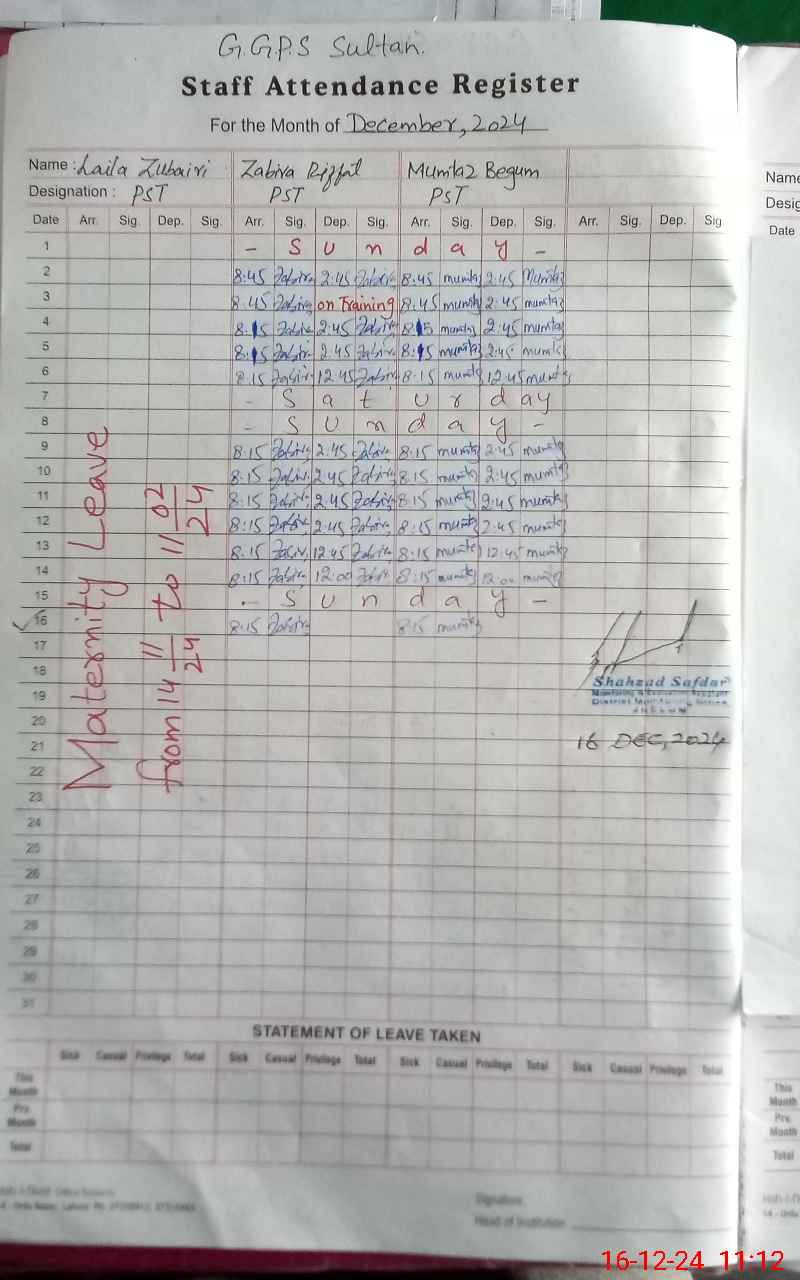 G.G.P.S Sultan.
Staff Attendance Register
For the Month of December, 2024
Name : Laila Zubairi Zabira Riffat Mumtaz Begum
Designation : PST PST PST
Date Arr. Sig. Dep. Sig. Arr. Sig. Dep. Sig. Arr. Sig. Dep. Sig. Arr. Sig. Dep. Sig
1 - S u n d a y -
2 8:45 Zabira 2:45 Zabira 8:45 mumtaz 2:45 Mumtaz
3 8:45 Zabira on Training 8:45 mumtaz 2:45 mumtaz
4 8:15 Zabira 2:45 Zabira 8:15 mumtaz 2:45 mumtaz
5 8:15 Zabira 2:45 Zabira 8:15 mumtaz 2:45 mumtaz
6 8:15 Zabira 12:45 Zabira 8:15 mumtaz 12:45 mumtaz
7 - S a t u r d a y
8 - S u n d a y -
9 8:15 Zabira 2:45 Zabira 8:15 mumtaz 2:45 mumtaz
10 8:15 Zabira 2:45 Zabira 8:15 mumtaz 2:45 mumtaz
11 8:15 Zabira 2:45 Zabira 8:15 mumtaz 2:45 mumtaz
12 8:15 Zabira 2:45 Zabira 8:15 mumtaz 2:45 mumtaz
13 8:15 Zabira 12:45 Zabira 8:15 mumtaz 12:45 mumtaz
14 8:15 Zabira 12:00 Zabira 8:15 mumtaz 12:00 mumtaz
15 - S u n d a y -
16 8:15 Zabira 8:15 mumtaz
17
18
19
20
21
22
23
24
25
26
27
28
29
30
31
Maternity Leave
from 14 11/24 to 11 02/24
Shahzad Safdar
Monitoring & Evaluation Assistant
District Monitoring Office
JHELUM
16 DEC, 2024
STATEMENT OF LEAVE TAKEN
Sick Casual Privilege Total Sick Casual Privilege Total Sick Casual Privilege Total Sick Casual Privilege Total
This Month
Prv. Month
Total
Signature
Head of Institution
Name
Desig
Date
This Month
Prv. Month
Total
16-12-24 11:12